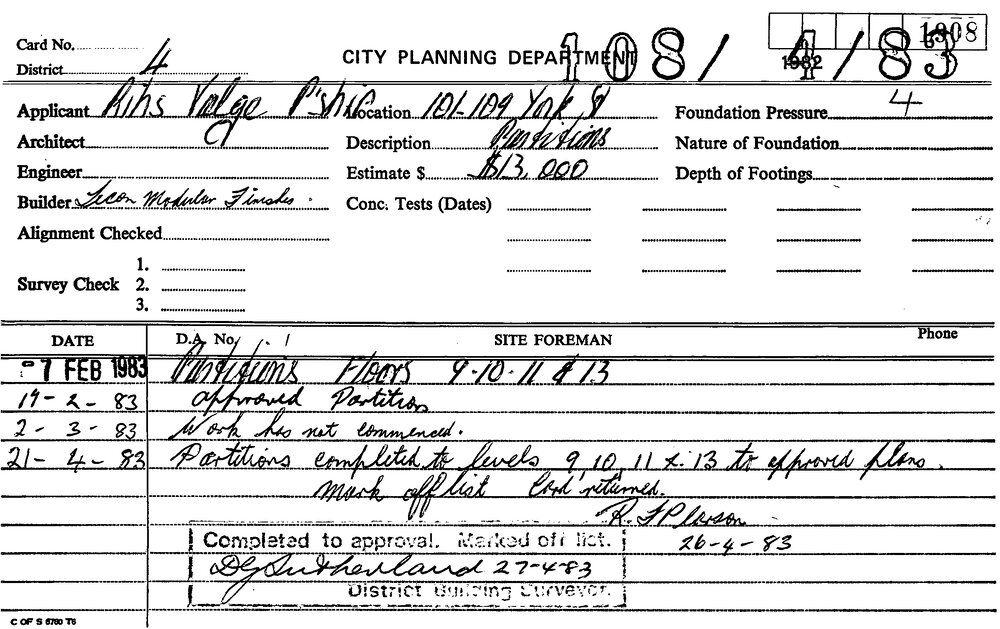 1908
Card No.
108/ 4/83
CITY PLANNING DEPARTMENT
1982
District 4
4
Applicant P'ship
Location 101-109 York St
Foundation Pressure
Architect
Description Partitions
Nature of Foundation
Engineer
Estimate $ $13,000
Depth of Footings
Builder Tecon Modular Finishes.
Conc. Tests (Dates)
Alignment Checked
Survey Check 1.
2.
3.
DATE D.A. No. SITE FOREMAN Phone
-7 FEB 1983 Partitions Floors 9-10-11 & 13
19-2-83 approved Partition
2-3-83 Work has not commenced.
21-4-83 Partitions completed to levels 9, 10, 11 & 13 to approved plans.
Mark off list Card returned.
26-4-83
Completed to approval. Marked off list.
DG Sutherland 27-4-83
District Building Surveyor.
C OF S 6760 T6